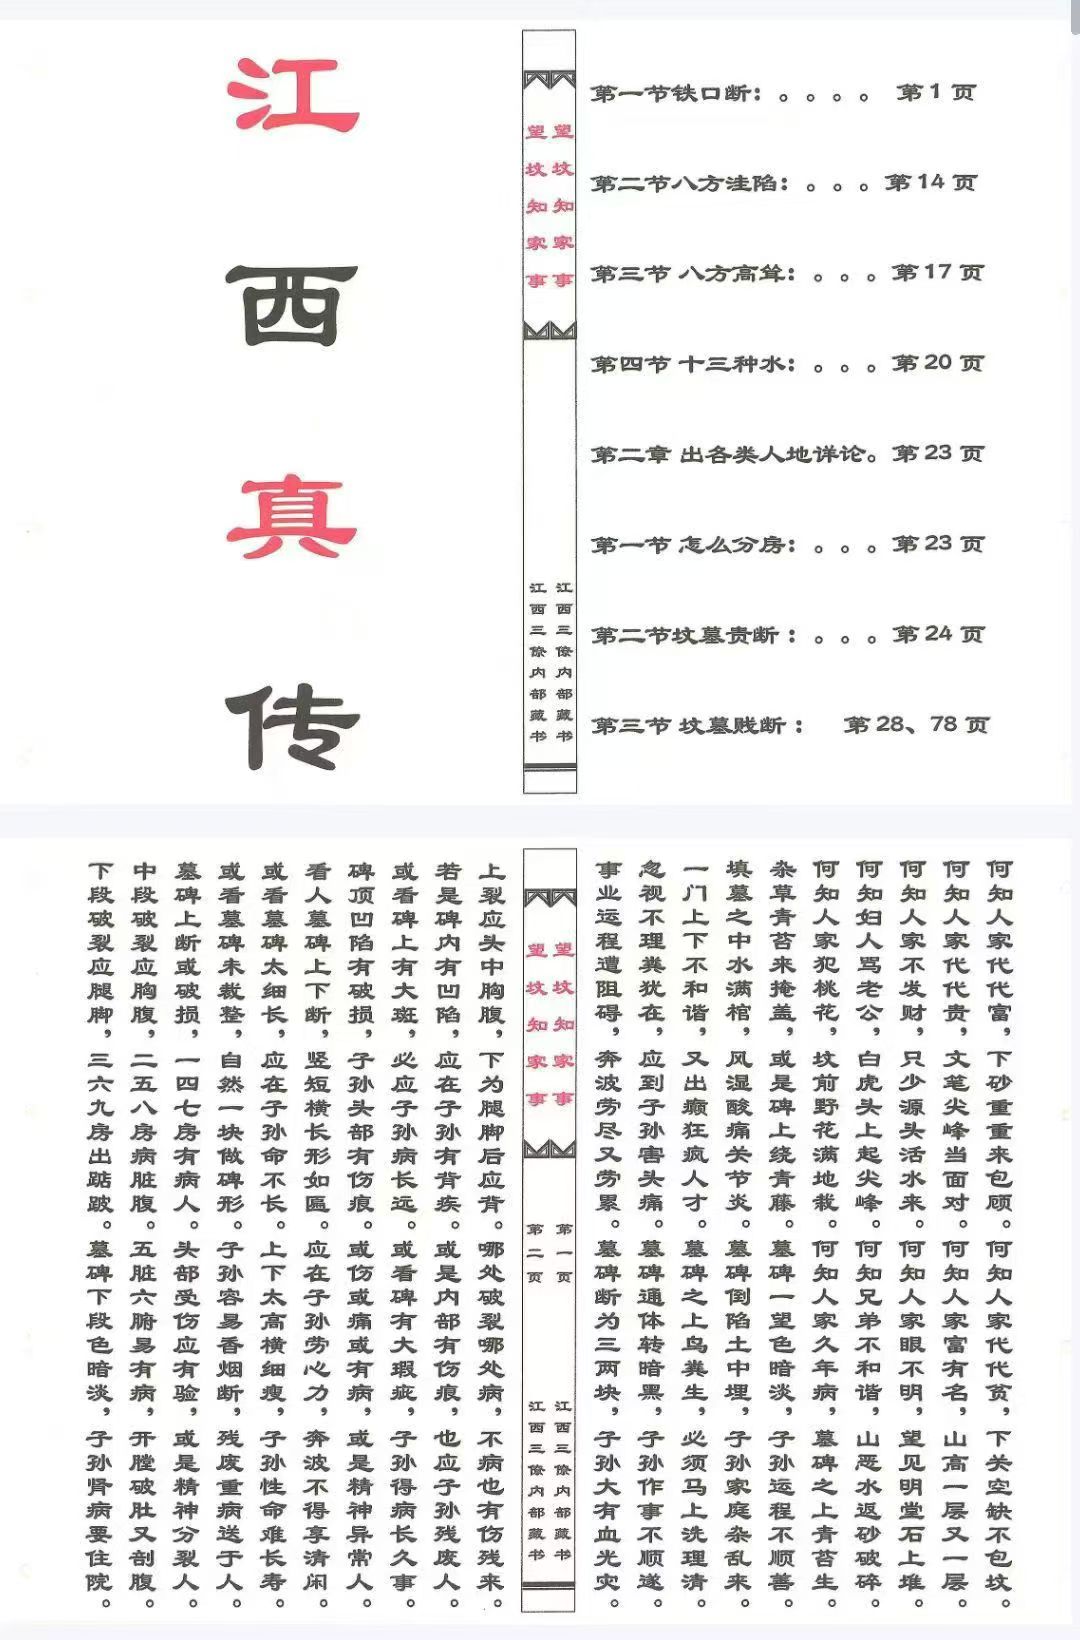 江西真传
望坟知家事
望坟知家事
江西三僚内部藏书
江西三僚内部藏书
第一节铁口断：。。。。 第1页
第二节八方洼陷：。。。第14页
第三节 八方高耸：。。。第17页
第四节 十三种水：。。。第20页
第二章 出各类人地详论。第23页
第一节 怎么分房：。。。第23页
第二节坟墓贵断：。。。第24页
第三节 坟墓贱断： 第28、78页
何知人家代代富，下砂重重来包顾。何知人家代代贫，下关空缺不包坟。
何知人家代代贵，文笔尖峰当面对。何知人家富有名，山高一层又一层。
何知人家不发财，只少源头活水来。何知人家眼不明，望见明堂石上堆。
何知妇人骂老公，白虎头上起尖峰。何知兄弟不和谐，山恶水返砂破碎。
何知人家犯桃花，坟前野花满地栽。何知人家久年病，墓碑之上青苔生。
杂草青苔来掩盖，或是碑上绕青藤。墓碑一望色暗淡，子孙运程不顺善。
填墓之中水满棺，风湿酸痛关节炎。墓碑倒陷土中埋，子孙家庭杂乱来。
一门上下不和谐，又出癫狂疯人才。墓碑之上鸟粪生，必须马上洗理清。
忽视不理粪犹在，应到子孙害头痛。墓碑通体转暗黑，子孙作事不顺遂。
事业运程遭阻碍，奔波劳尽又劳累。墓碑断为三两块，子孙大有血光灾。
望坟知家事
第一页
江西三僚内部藏书
望坟知家事
第二页
江西三僚内部藏书
上裂应头中胸腹，下为腿脚后应背。哪处破裂哪处病，不病也有伤残来。
若是碑内有凹陷，应在子孙有背疾。或是内部有伤痕，也应子孙残废人。
或看碑上有大斑，必应子孙病长远。或看碑有大瑕疵，子孙得病长久事。
碑顶凹陷有破损，子孙头部有伤痕。或伤或痛或有病，或是精神异常人。
看人墓碑上下断，竖短横长形如匾。应在子孙劳心力，奔波不得享清闲。
或看墓碑太细长，应在子孙命不长。上下太高横细瘦，子孙性命难长寿。
或看墓碑未裁整，自然一块做碑形。子孙容易香烟断，残废重病送于人。
墓碑上断或破损，一四七房有病人。头部受伤应有验，或是精神分裂人。
中段破裂应胸腹，二五八房病脏腹。五脏六腑易有病，开膛破肚又剖腹。
下段破裂应腿脚，三六九房出踮跛。墓碑下段色暗淡，子孙肾病要住院。